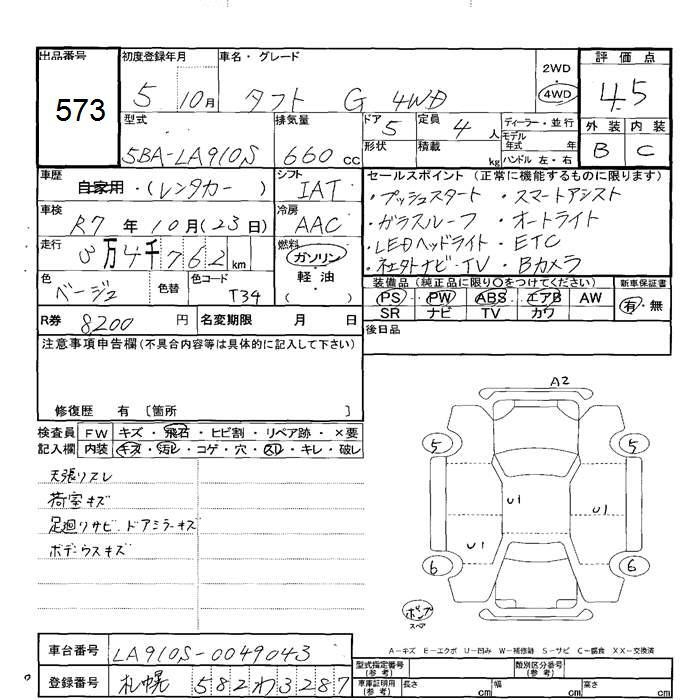 出品番号 573
初度登録年月 5 10月
車名・グレード タフト G 4WD
2WD 4WD
評価点 4.5
外装 B 内装 C
型式 5BA-LA910S
排気量 660 cc
ドア 5 形状
定員 4人 積載 kg
ディーラー・並行
モデル年式 年式
ハンドル 左・右
車歴 自家用・(レンタカー)
シフト IAT
車検 R7年10月(23日)
冷房 AAC
走行 3万4千762km
燃料 ガソリン・軽油 ( )
色 ベージュ 色替 色コード T34
R券 8200円 名変期限 月 日
セールスポイント (正常に機能するものに限ります)
・プッシュスタート ・スマートアシスト
・ガラスルーフ ・オートライト
・LEDヘッドライト・ETC
・社外ナビ・TV・Bカメラ
装備品(純正品に限り〇をつけてください)
PS PW ABS エアB AW
SR ナビ TV カワ
新車保証書 有・無
後日品
注意事項申告欄(不具合内容等は具体的に記入して下さい)
修復歴 有 [箇所 ]
検査員記入欄
FW キズ・飛石・ヒビ割・リペア跡・×要
内装 キズ・汚レ・コゲ・穴・スレ・キレ・破レ
天張リスレ
荷室キズ
足廻リサビ.ドアミラーキズ
ボデーウスキズ
A2
5 5
U1 U1
U1
6 6
ポンプ
スペア
A-キズ E-エクボ U-凹み W-補修跡 S-サビ C-腐食 XX-交換済
車台番号 LA910S-0049043
登録番号 札幌 582わ3287
型式指定番号(参考) 類別区分番号(参考)
車庫証明用(参考) 長さ cm 幅 cm 高さ cm